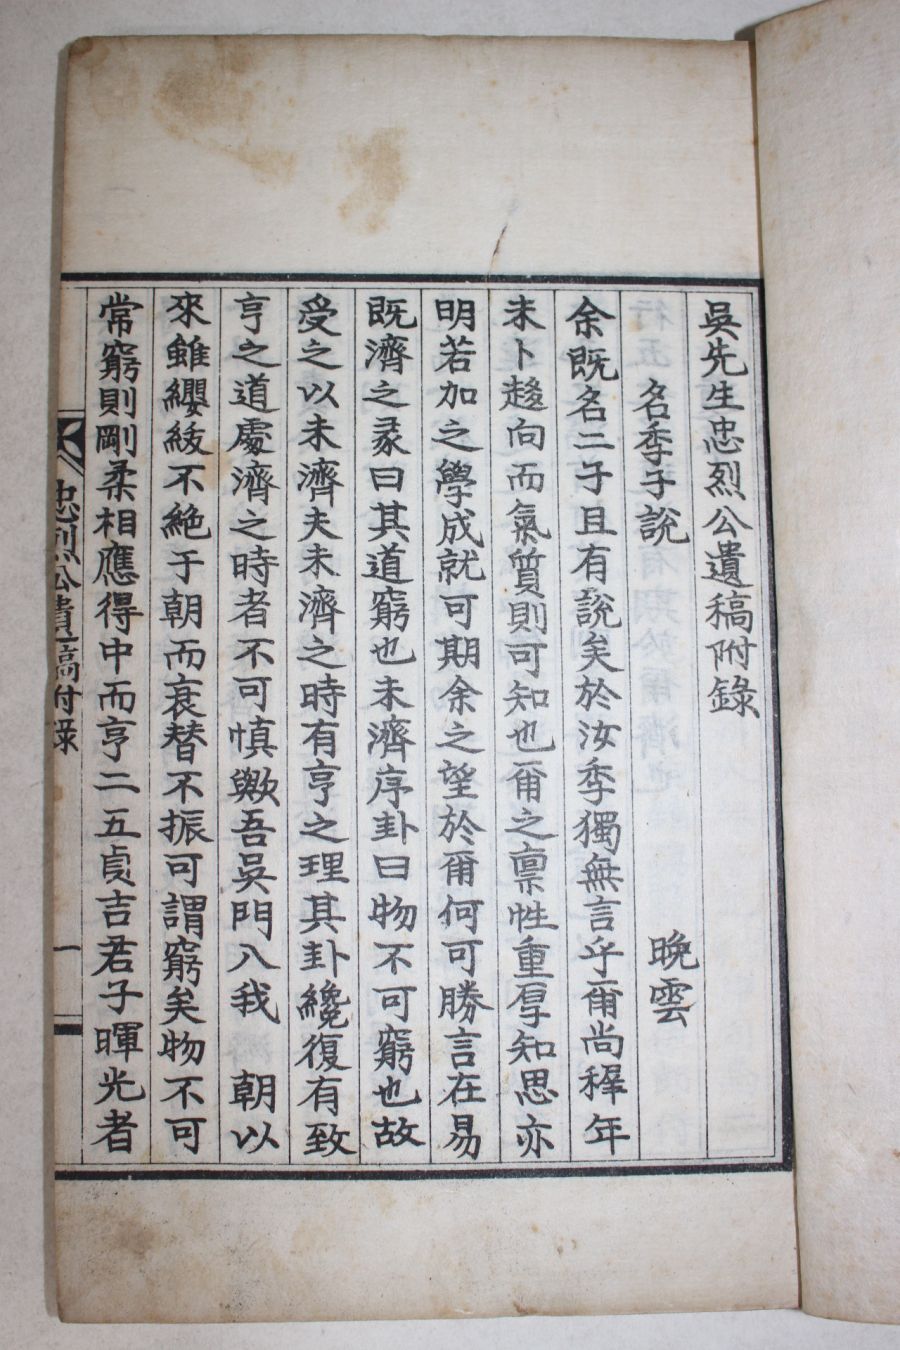 吳先生忠烈公遺稿附錄
名季子說　晚雲
余既名二子且有說矣於汝季獨無言乎爾尚穉年
未卜趍向而氣質則可知也爾之禀性重厚知思亦
明若加之學成就可期余之望於爾何可勝言在易
既濟之彖曰其道窮也未濟序卦曰物不可窮也故
受之以未濟夫未濟之時有亨之理其卦纔復有致
亨之道處濟之時者不可愼歟吾吳門八我　朝以
來雖纓紱不絶于朝而衰替不振可謂窮矣物不可
常窮則剛柔相應得中而亨二五貞吉君子暉光者
忠烈公遺稿附錄　一